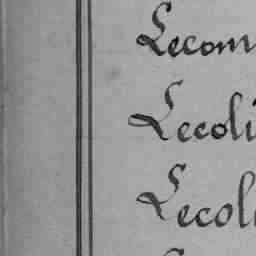 Lecom
Lecoli
Lecol